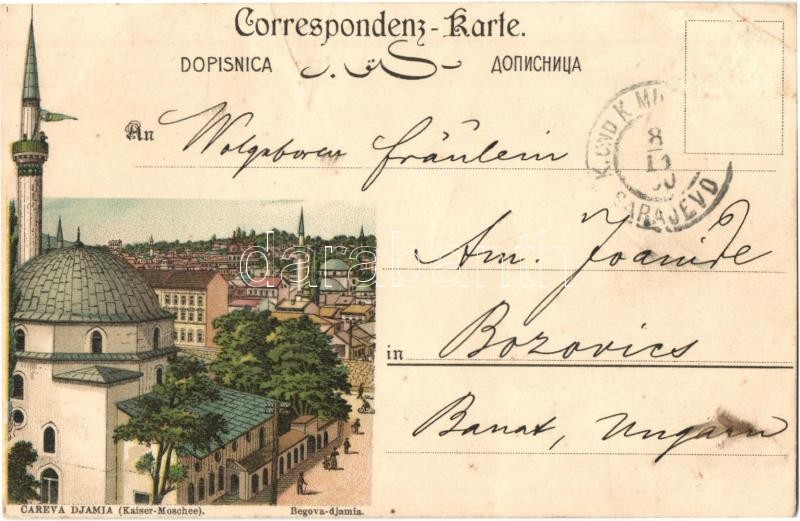 Correspondenz-Karte.
DOPISNICA
ДОПИСНИЦА
An Wolgeboren Fräulein
K. UND K. MI
8
SARAJEVO
Am. Joanide
in Bozovics
Banat, Ungarn
darabanth
CAREVA DJAMIA (Kaiser-Moschee). Begova-djamia.